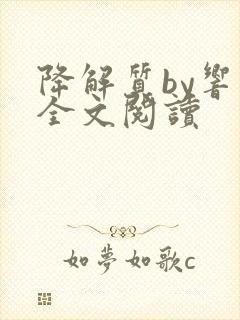 降解質by響
全文閱讀
如夢如歌c